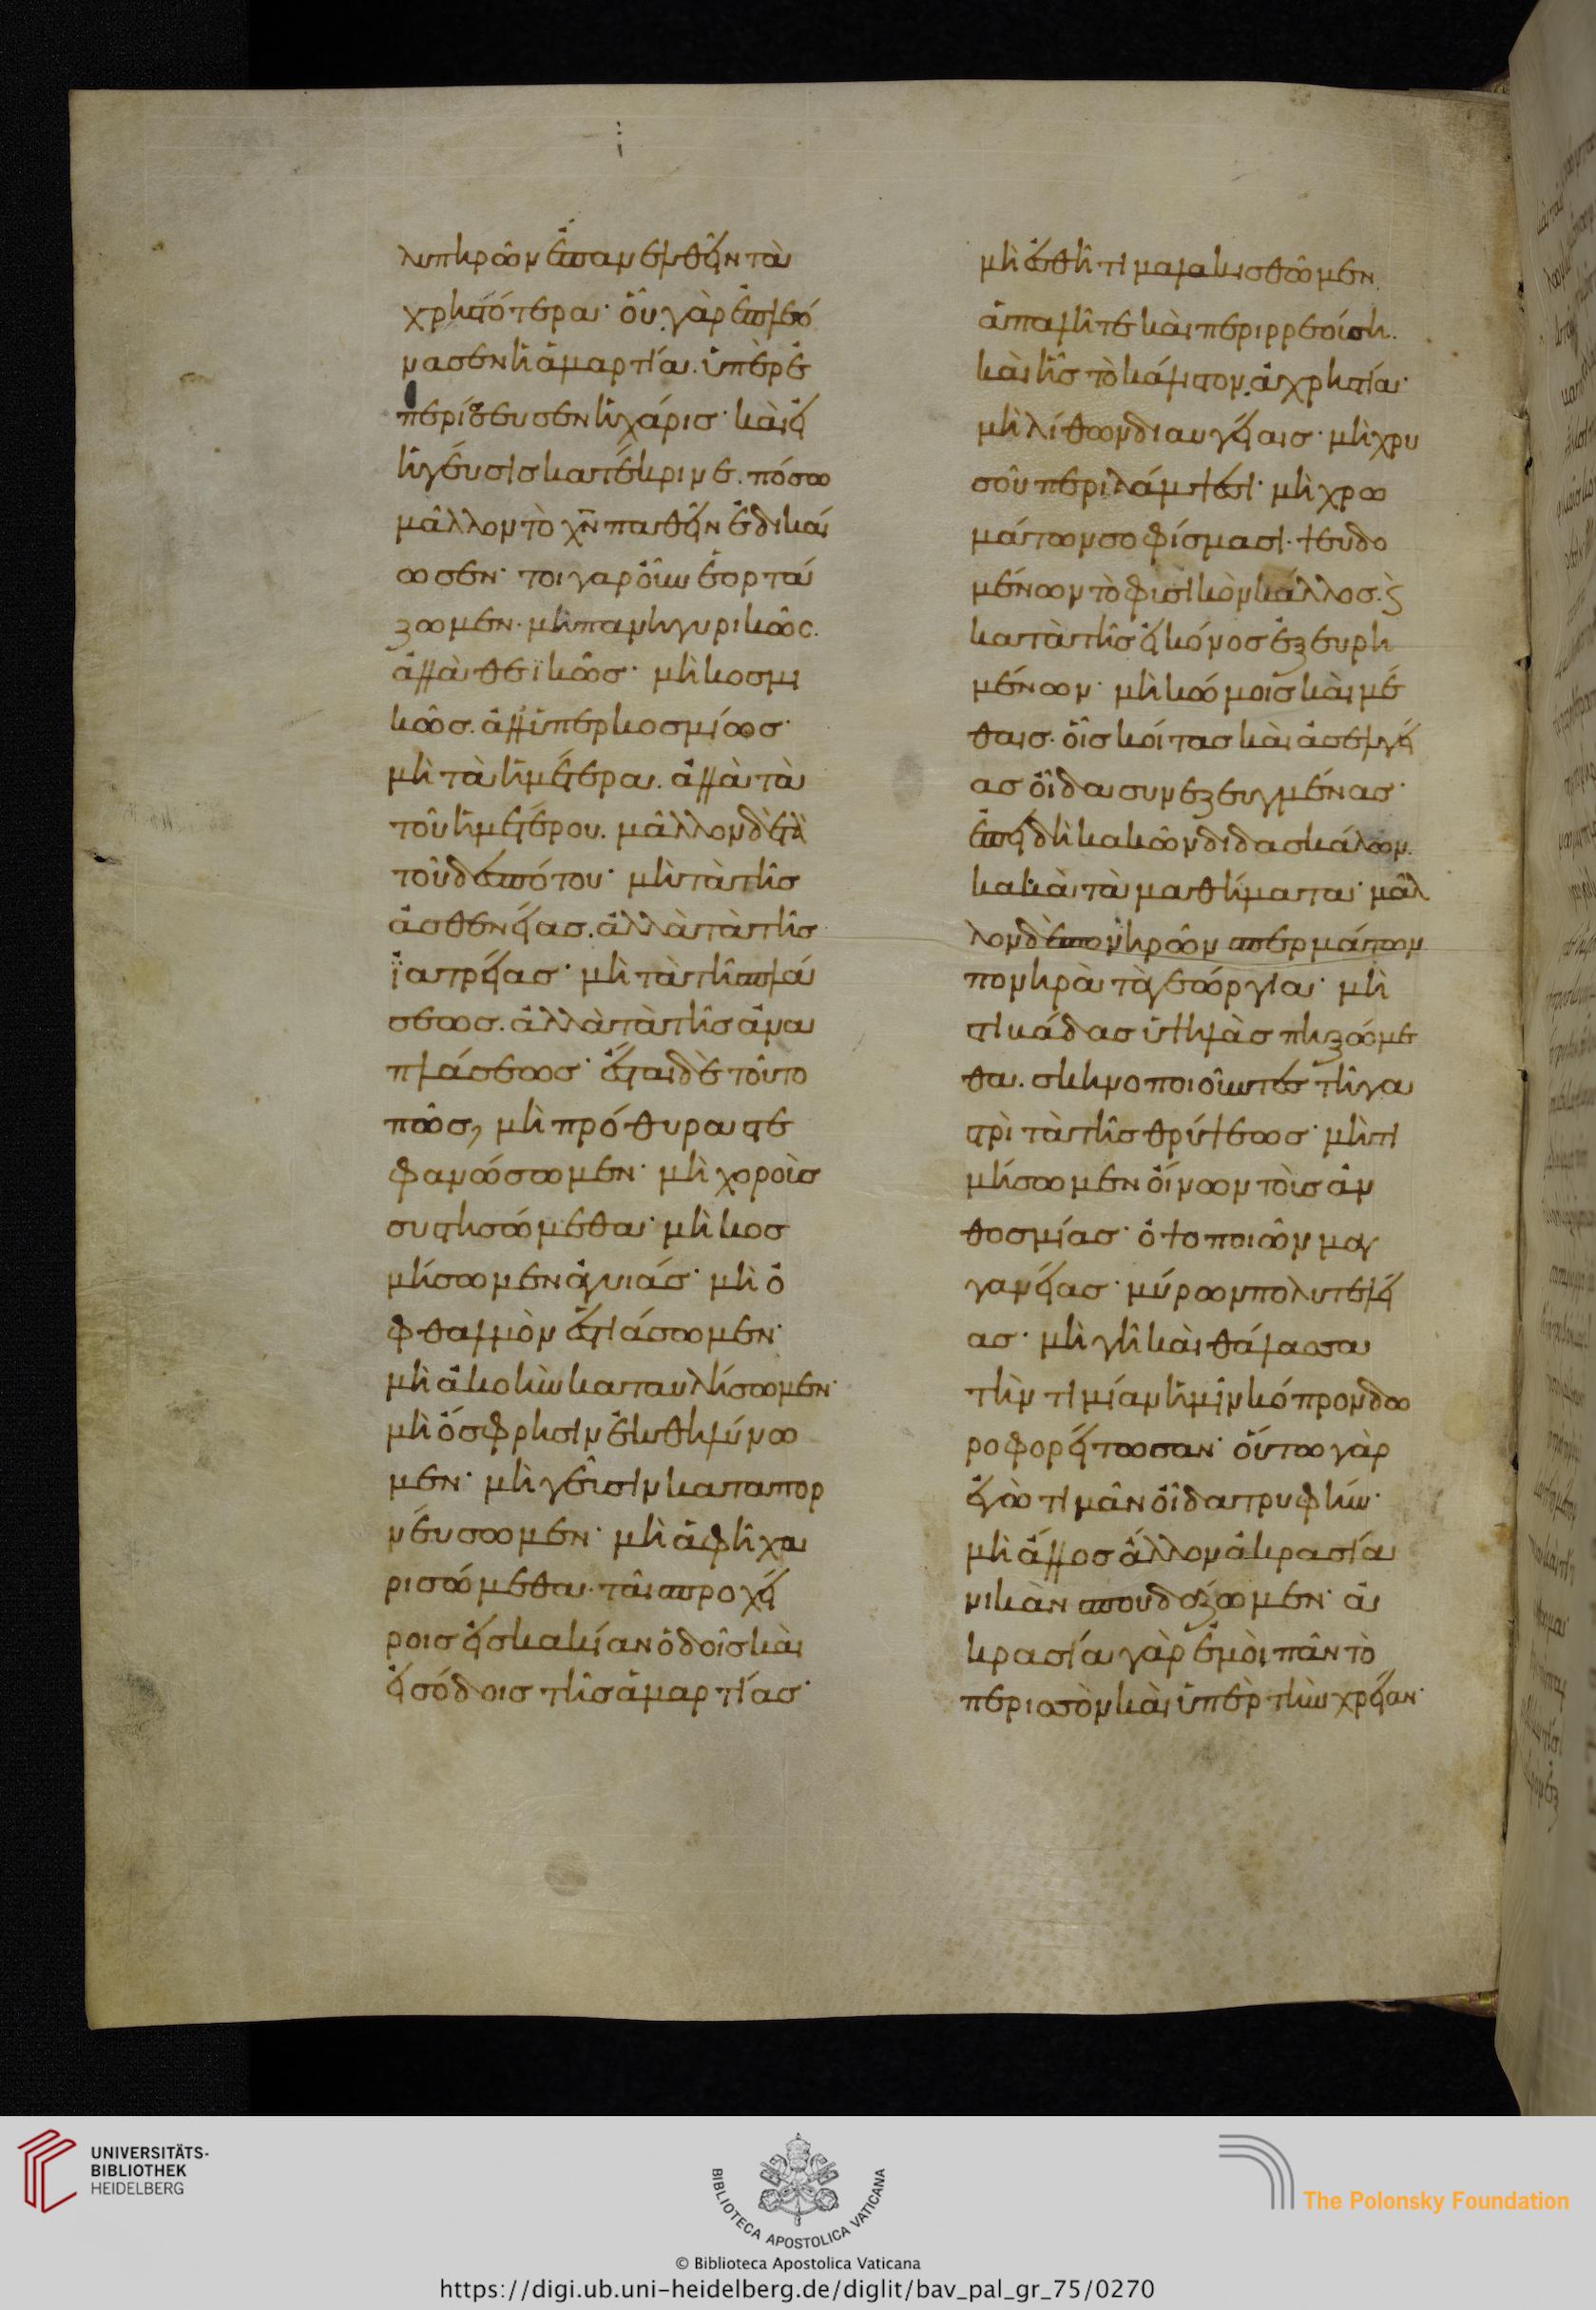 λυπηρῶν ἐπανελθεῖν τὰ
χρηστότερα· οὗ γὰρ ἐπλεό
νασεν ἡ ἁμαρτία. ὑπερε
περίσσευσεν ἡ χάρις· καὶ εἰ
ἡ γεῦσις κατέκρινε. πόσω
μᾶλλον τὸ χν παθεῖν ἐδικαί
ωσεν· τοιγαροῦν ἑορτά
ζωμεν· μὴ πανηγυρικῶς.
ἀλλὰ θεϊκῶς· μὴ κοσμι
κῶς. ἀλλ' ὑπερκοσμίως·
μὴ τὰ ἡμέτερα. ἀλλὰ τὰ
τοῦ ἡμετέρου. μᾶλλον δὲ τὰ
τοῦ δεσπότου· μὴ τὰ τῆς
ἀσθενείας. ἀλλὰ τὰ τῆς
ἰατρείας· μὴ τὰ τῆς πλά
σεως. ἀλλὰ τὰ τῆς ἀνα
πλάσεως· ἔσται δὲ τοῦτο
πῶς, μὴ πρόθυρα στε
φανώσωμεν· μὴ χοροὺς
συστησώμεθα· μὴ κοσ
μήσωμεν ἀγυιάς· μὴ ὀ
φθαλμὸν ἑστιάσωμεν·
μὴ ἀκοὴν καταυλήσωμεν·
μὴ ὄσφρησιν ἐκθηλύνω
μεν· μὴ γεῦσιν καταπορ
νεύσωμεν· μὴ ἁφῆ χα
ρισώμεθα· ταῖς προχεί
ροις εἰς κακίαν ὁδοῖς καὶ
εἰσόδοις τῆς ἁμαρτίας·
μὴ ἐσθῆτι μαλακισθῶμεν
ἁπαλῆ τε καὶ περιρρεούση.
καὶ ἧς τὸ κάλλιστον ἀχρηστία·
μὴ λίθων διαυγείαις· μὴ χρυ
σοῦ περιλάμψεσι· μὴ χρω
μάτων σοφίσμασι· ψευδο
μένων τὸ φυσικὸν κάλλος. ϗ
κατὰ τῆς εἰκόνος ἐξευρη
μένων· μὴ κώμοις καὶ μέ
θαις. οἷς κοίτας καὶ ἀσελγεί
ας οἶδα συνεζευγμένας·
ἐπειδὴ κακῶν διδασκάλων
κακὰ τὰ μαθήματα· μᾶλ
λον δὲ πονηρῶν σπερμάτων
πονηρὰ τὰ γεώργια· μὴ
στιβάδας ὑψηλὰς πηξώμε
θα. σκηνοποιοῦντες τῆ γα
στρὶ τὰ τῆς θρύψεως· μὴ τι
μήσωμεν οἴνων τοὺς ἀν
θοσμίας· ὀψοποιῶν μαγ
γανείας· μύρων πολυτελεί
ας· μὴ γῆ καὶ θάλασσα
τὴν τιμίαν ἡμῖν κόπρον δω
ροφορείτωσαν· οὕτω γὰρ
ἐγὼ τιμᾶν οἶδα τρυφήν·
μὴ ἄλλος ἄλλον ἀκρασία
νικᾶν σπουδάζωμεν· ἀ
κρασία γὰρ ἐμοὶ πᾶν τὸ
περισσὸν καὶ ὑπὲρ τὴν χρείαν·
UNIVERSITÄTS-
BIBLIOTHEK
HEIDELBERG
BIBLIOTECA APOSTOLICA VATICANA
The Polonsky Foundation
© Biblioteca Apostolica Vaticana
https://digi.ub.uni-heidelberg.de/diglit/bav_pal_gr_75/0270